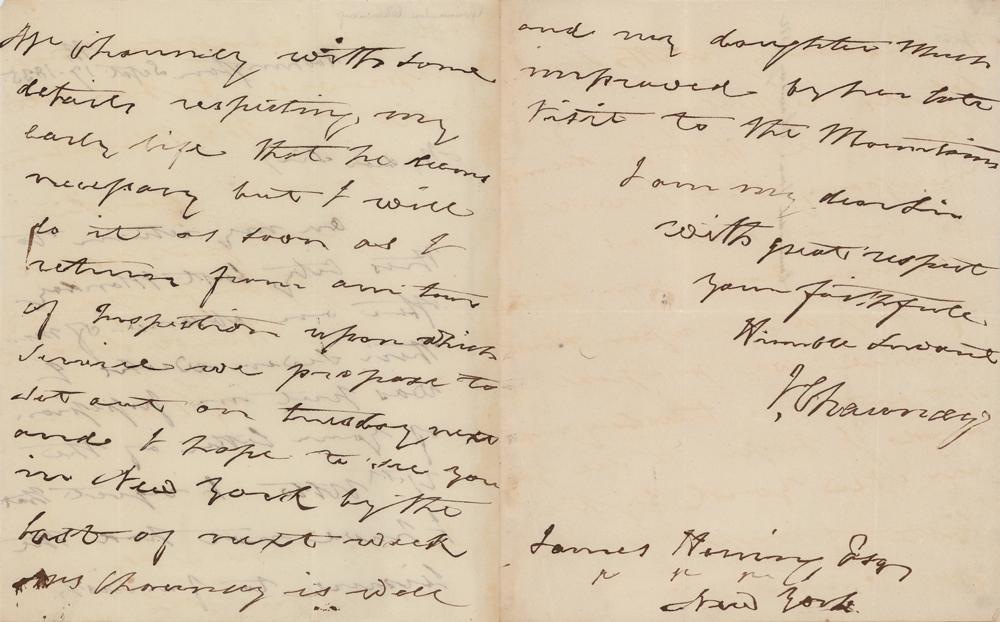 Mr Chauncey with some
details respecting my
early life that he deems
necessary but I will
do it as soon as I
return from our tour
of Inspection upon which
Service we propose to
set out on tuesday next
and I hope to see you
in New York by the
last of next week
Mrs Chauncey is well
and my daughter much
improved by her late
Visit to the Mountains
I am my dear Sir
with great respect
Your faithful
Humble Servant
I Chauncey
James Herring Esqr
New York